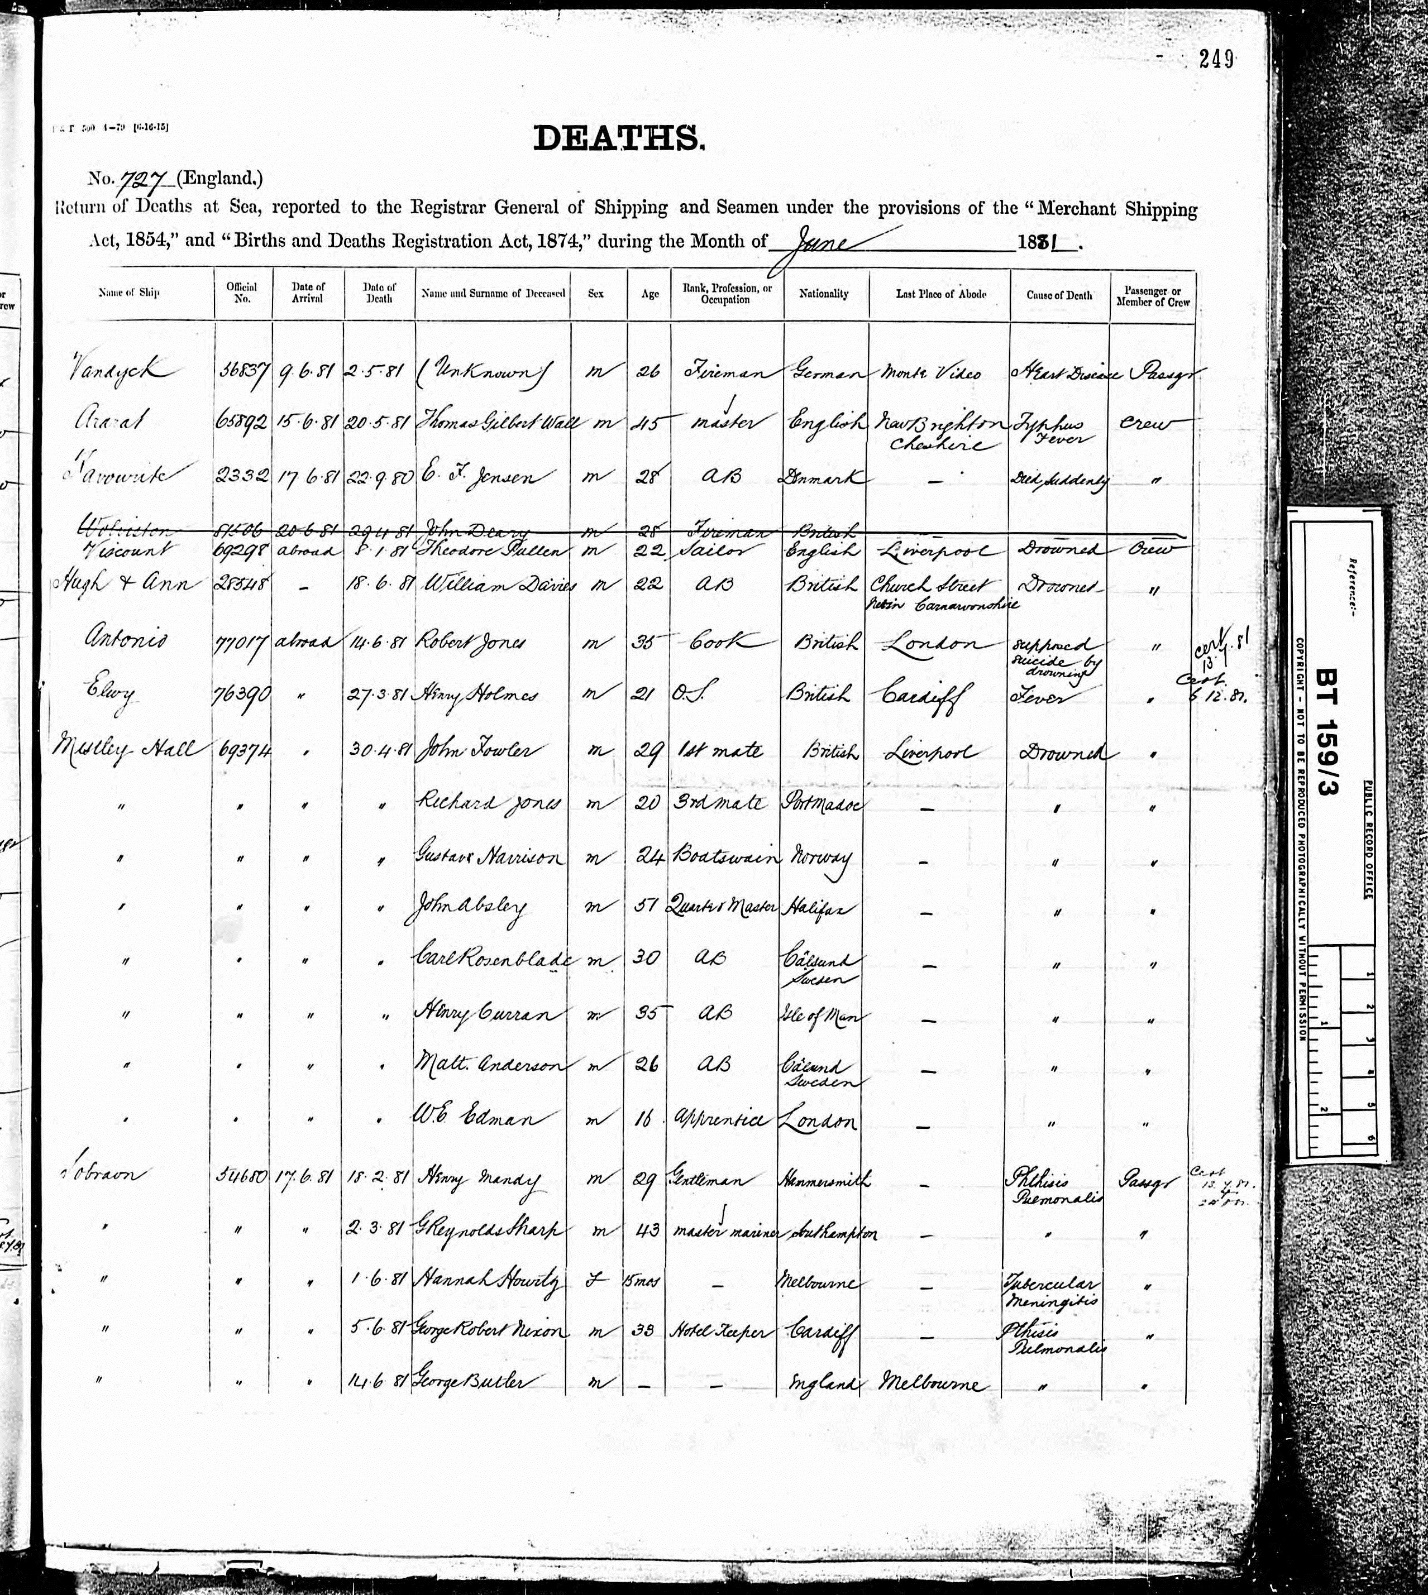 249
DEATHS.
No. 727 (England.)
Return of Deaths at Sea, reported to the Registrar General of Shipping and Seamen under the provisions of the "Merchant Shipping
Act, 1854," and "Births and Deaths Registration Act, 1874," during the Month of June 1881.
Name of Ship Official No. Date of Arrival Date of Death Name and Surname of Deceased Sex Age Rank, Profession, or Occupation Nationality Last Place of Abode Cause of Death Passenger or Member of Crew
Vandyck 56837 9.6.81 2.5.81 (Unknown) m 26 Fireman German Monte Video Heart Disease Passgr
Ararat 65892 15.6.81 20.5.81 Thomas Gilbert Wall m 45 master English New Brighton Cheshire Typhus Fever Crew
Favourite 2332 17.6.81 22.9.80 E. F. Jensen m 28 AB Denmark — Died Suddenly "
Wolviston 81506 20.6.81 29.4.81 John Deary m 28 Fireman British
Viscount 69298 abroad 8.1.81 Theodore Pullen m 22 Sailor English Liverpool Drowned Crew
Hugh & Ann 28548 - 18.6.81 William Davies m 22 AB British Church Street Nevin Carnarvonshire Drowned "
Antonio 77017 abroad 14.6.81 Robert Jones m 35 Cook British London supposed suicide by drowning " cert 13.7.81
Elwy 76390 " 27.3.81 Henry Holmes m 21 O.S. British Cardiff Fever " Cert. 6.12.81.
Mistley Hall 69374 " 30.4.81 John Fowler m 29 1st mate British Liverpool Drowned "
" " " " Richard Jones m 20 3rd mate Port Madoc — " "
" " " " Gustave Harrison m 24 Boatswain Norway — " "
" " " " John Absley m 51 Quarter Master Halifax — " "
" " " " Carl Rosenblade m 30 AB Sweden — " "
" " " " Henry Curran m 35 AB Isle of Man — " "
" " " " Matt. Anderson m 26 AB Sweden — " "
" " " " W.E. Edman m 16 Apprentice London — " "
Sobraon 54680 17.6.81 18.2.81 Henry Mandy m 29 Gentleman Hammersmith — Phthisis Pulmonalis Passgr Cert
" " " 2.3.81 G Reynolds Sharp m 43 master mariner Southampton — " "
" " " 1.6.81 Hannah Howitz F 15 mos — Melbourne — Tubercular Meningitis "
" " " 5.6.81 George Robert Nixon m 33 Hotel Keeper Cardiff — Pthisis Pulmonalis "
" " " 14.6.81 George Butler m — — England Melbourne " "
Reference:-
BT 159/3
PUBLIC RECORD OFFICE
COPYRIGHT - NOT TO BE REPRODUCED PHOTOGRAPHICALLY WITHOUT PERMISSION